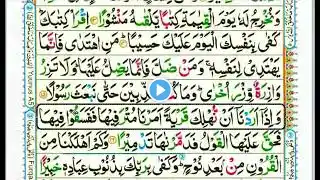 وَنُخْرِجُ لَهٗ يَوْمَ الْقِيٰمَةِ كِتٰبًا يَّلْقٰىهُ مَنْشُوْرًا اِقْرَاْ كِتٰبَكَ
كَفٰى بِنَفْسِكَ الْيَوْمَ عَلَيْكَ حَسِيْبًا مَنِ اهْتَدٰى فَاِنَّمَا
يَهْتَدِىْ لِنَفْسِهٖ وَمَنْ ضَلَّ فَاِنَّمَا يَضِلُّ عَلَيْهَا وَلَا تَزِرُ
وَازِرَةٌ وِّزْرَ اُخْرٰى وَمَا كُنَّا مُعَذِّبِيْنَ حَتّٰى نَبْعَثَ رَسُوْلًا
وَاِذَا اَرَدْنَا اَنْ نُّهْلِكَ قَرْيَةً اَمَرْنَا مُتْرَفِيْهَا فَفَسَقُوْا فِيْهَا
فَحَقَّ عَلَيْهَا الْقَوْلُ فَدَمَّرْنٰهَا تَدْمِيْرًا وَكَمْ اَهْلَكْنَا مِنَ
الْقُرُوْنِ مِنْ بَعْدِ نُوْحٍ وَكَفٰى بِرَبِّكَ بِذُنُوْبِ عِبَادِهٖ خَبِيْرًا